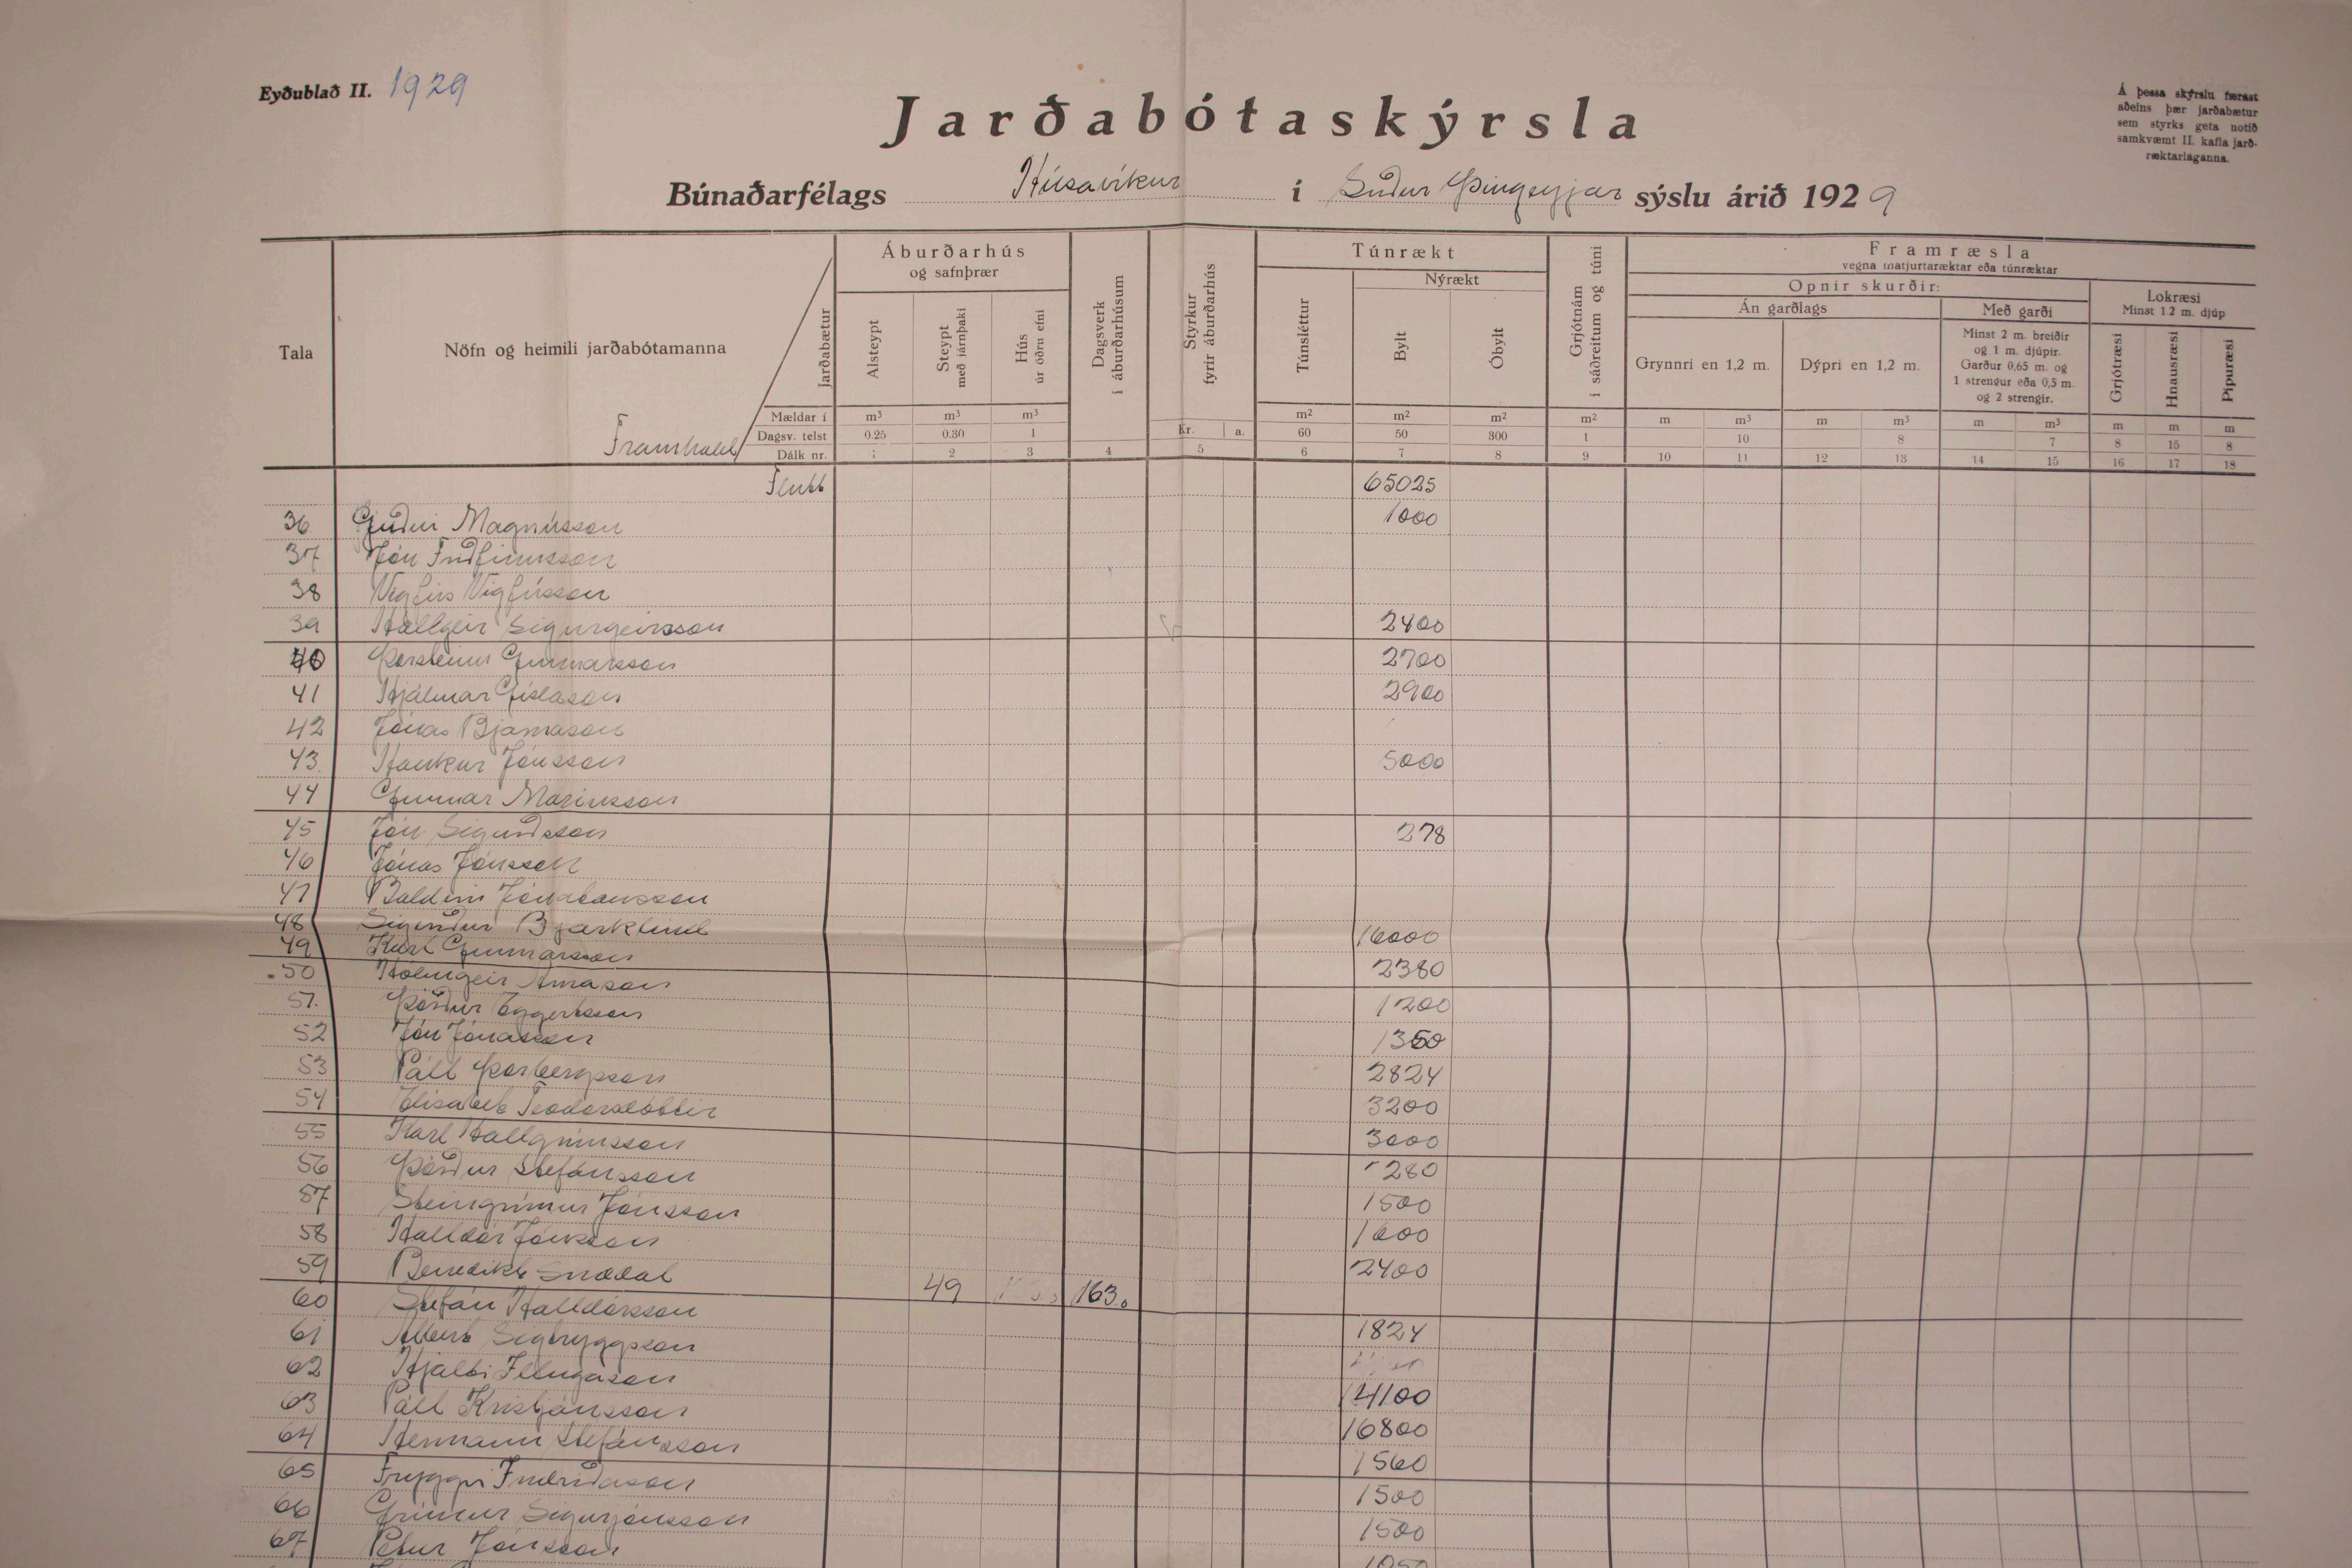 Eyðublað II. 1929
Jarðabótaskýrsla
Á þessa skýrslu færast
aðeins þær jarðabætur
sem styrks geta notið
samkvæmt II. kafla jarð-
ræktarlaganna.
Búnaðarfélags Húsavíkur í Suður Þingeyjar sýslu árið 1929
Tala
Nöfn og heimili jarðabótamanna
Framhald
Jarðabætur
Mældar í
Dagsv. telst
Dálk nr.
Áburðarhús
og safnþrær
Alsteypt
Steypt
með járnþaki
Hús
úr öðru efni
Dagsverk
í áburðarhúsum
Styrkur
fyrir áburðarhús
Túnrækt
Túnsléttur
Nýrækt
Bylt
Óbylt
Grjótnám
í sáðreitum og túni
Framræsla
vegna matjurtaræktar eða túnræktar
Opnir skurðir:
Án garðlags
Grynnri en 1,2 m.
Dýpri en 1,2 m.
Með garði
Minst 2 m. breiðir
og 1 m. djúpir.
Garður 0,65 m. og
1 strengur eða 0,5 m.
og 2 strengir.
Lokræsi
Minst 1.2 m. djúp
Grjótræsi
Hnausræsi
Pípuræsi
m³ m³ m³ Kr. a. m² m² m² m² m m³ m m³ m m³ m m m
0.25 0.30 1 60 50 300 1 10 8 7 8 15 8
1 2 3 4 5 6 7 8 9 10 11 12 13 14 15 16 17 18
Flutt 65025
36 Guðni Magnússon 1000
37 Jón Friðfinnsson
38 Vigfús Vigfússon
39 Hallgeir Sigurgeirsson 2400
40 Þorsteinn Gunnarsson 2700
41 Hjálmar Gíslason 2900
42 Jónas Bjarnason
43 Haukur Jónsson 5000
44 Gunnar Maríusson
45 Jón Sigurðsson 278
46 Jónas Jónsson
47 Baldvin Jónatansson
48 Sigurður Bjarklind 16000
49 Karl Gunnarsson 2380
50 Hólmgeir Árnason 1200
51. Þórður Eggertsson 1350
52 Jón Jónasson 2824
53 Páll Þorbergsson 3200
54 Elísabet Teodórsdóttir 3000
55 Karl Hallgrímsson 280
56 Þórður Stefánsson 1500
57 Steingrímur Jónsson 1600
58 Halldór Jónsson 2400
59 Benedikt Snædal 49 163.
60 Stefán Halldórsson 1824
61 Albert Sigtryggsson
62 Hjálti Illugason 14100
63 Páll Kristjánsson 16800
64 Hermann Stefánsson 1560
65 Tryggvi Indriðason 1500
66 Grímur Sigurjónsson 1500
67 Pétur Jónsson 1050